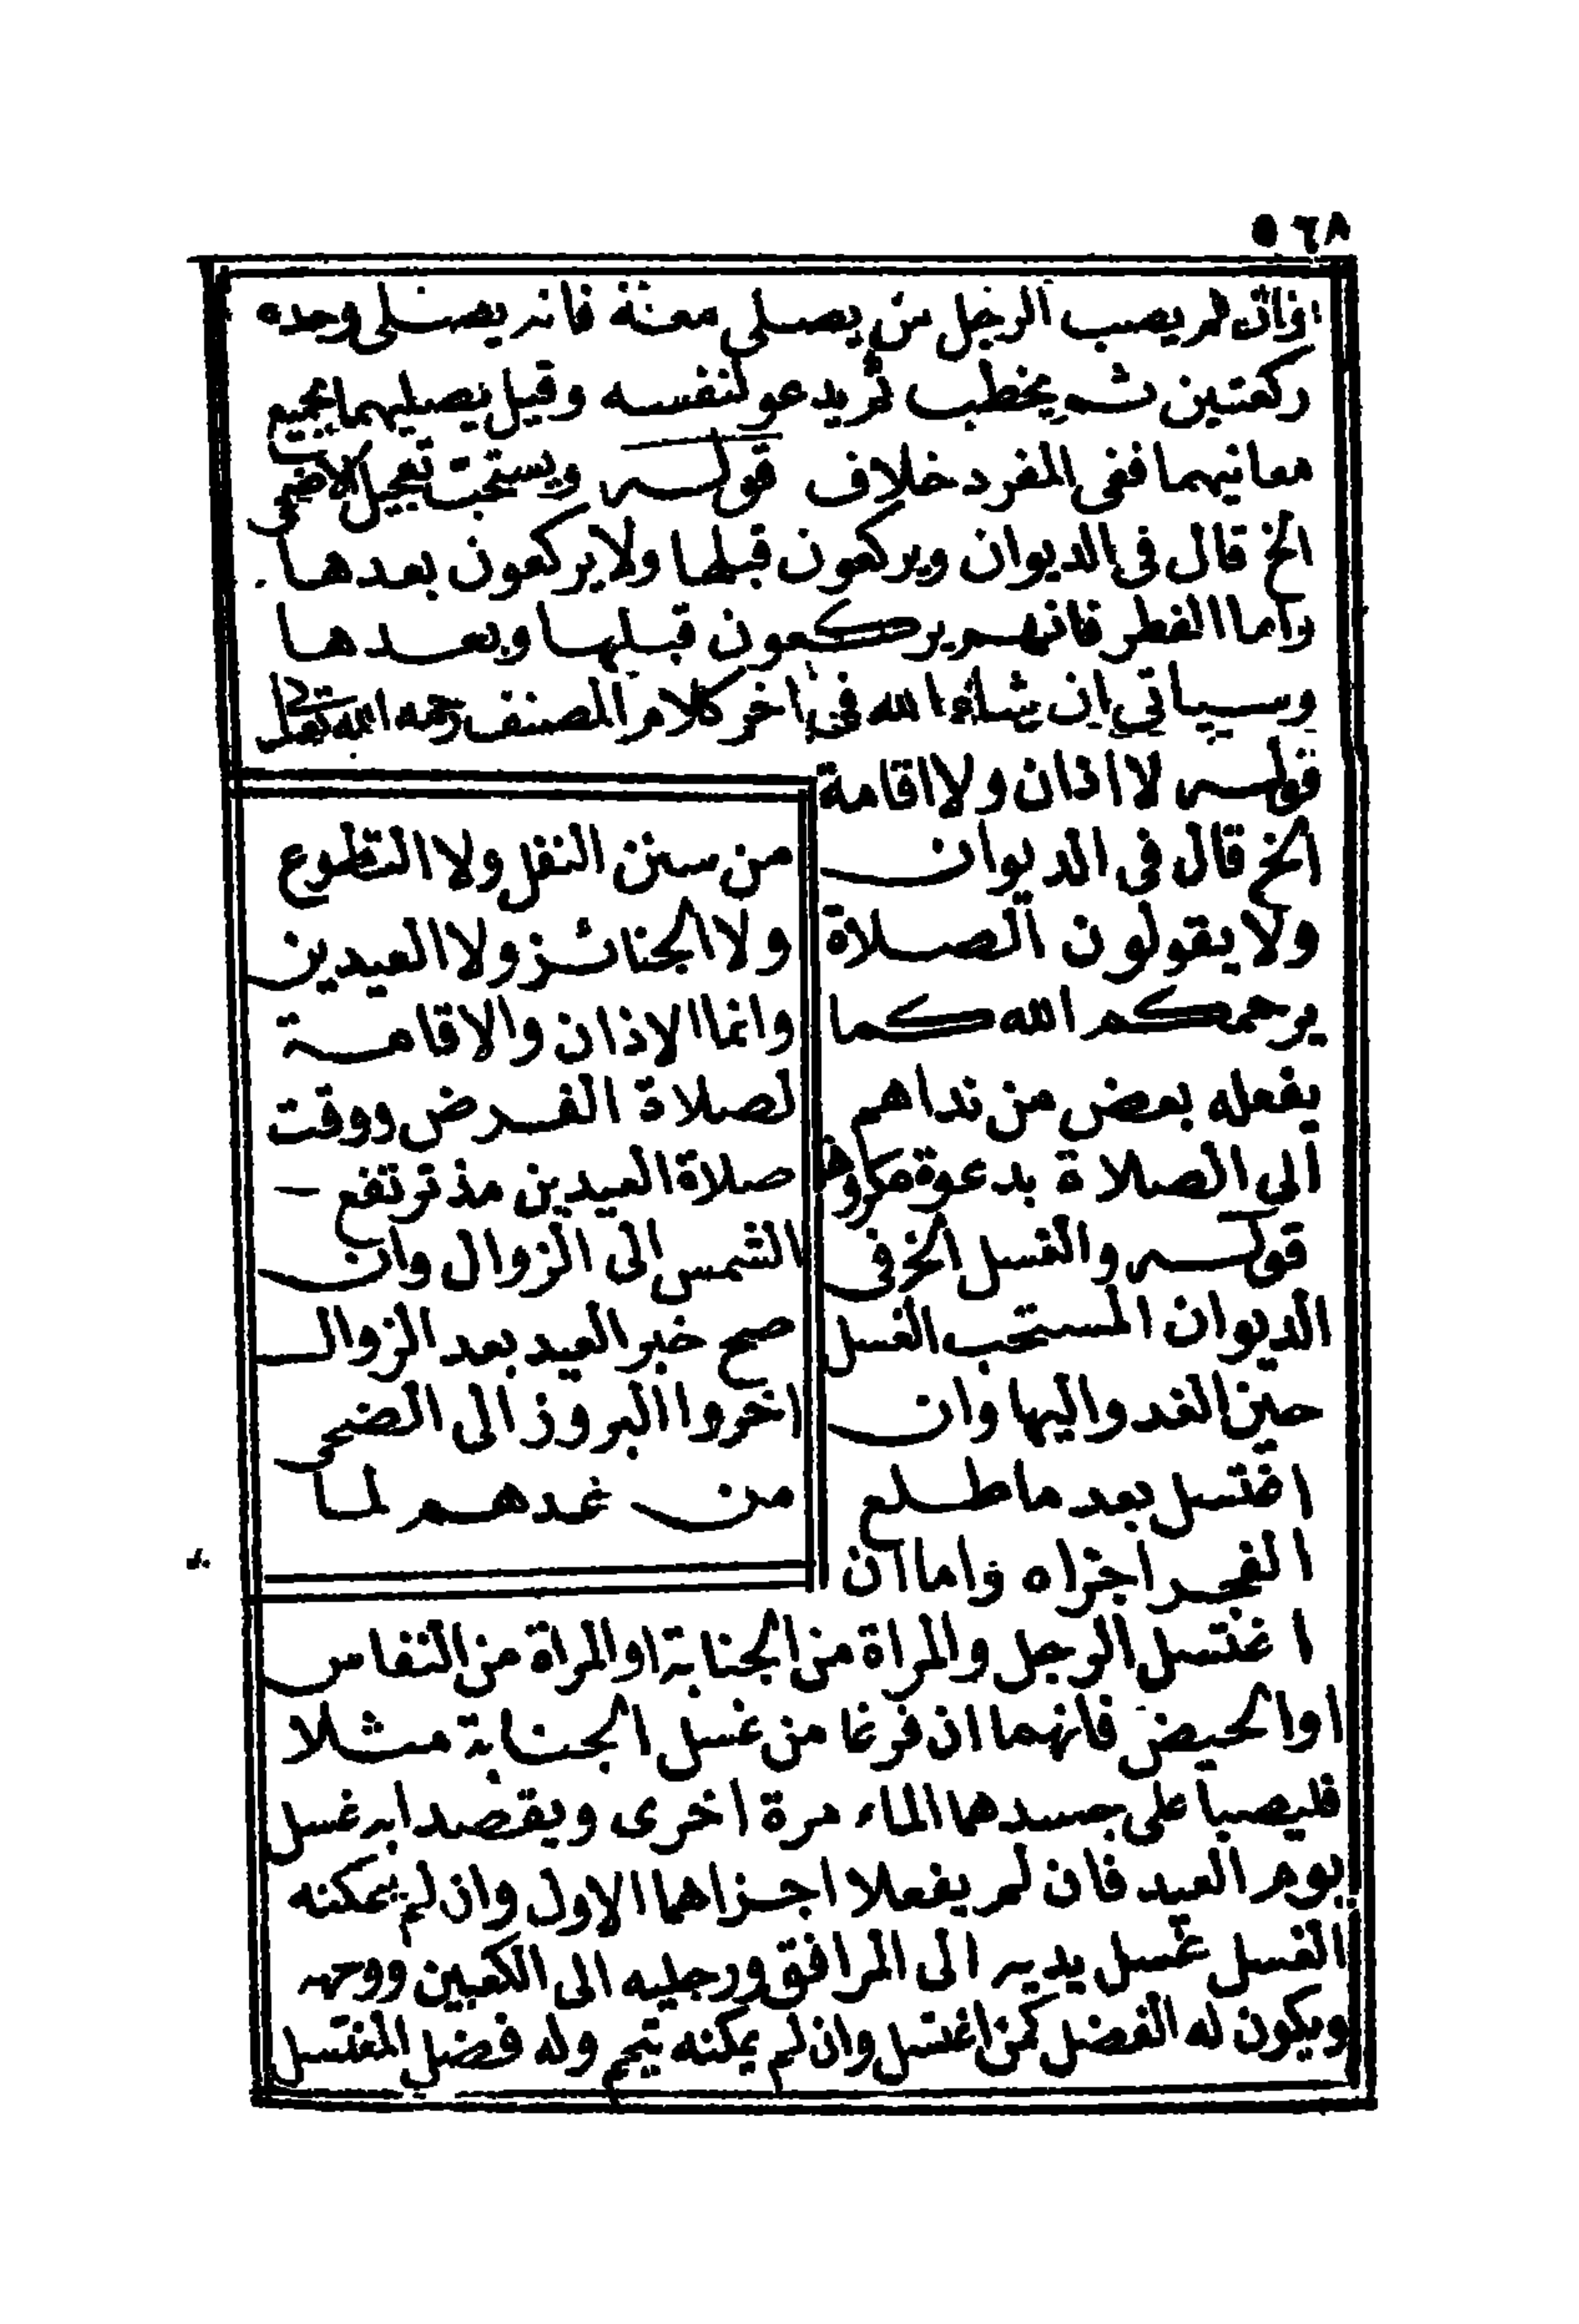 ٥٦٨
وان لم يصب الرجل من يصلي معه فانه يصلي وحده
ركعتين ثم يخطب ثم يدعو لنفسه وقيل يصليهما بجميع
معانيهما ففي المفرد خلاف قوله ويستحب تعجيل الاضحى
الخ قال في الديوان ويركعون قبلها ولا يركعون بعدها
واما الفطر فانهم يركعون قبلها وبعدها
وسياتي ان شاء الله في اخر كلام المصنف رحمه الله تعالى
قوله لا اذان ولا اقامة
الخ قال في الديوان
ولا يقولون الصلاة
يرحمكم الله كما
يفعله بعض من نداهم
الى الصلاة بدعوة مكروها
قوله والغسل الخ في
الديوان المستحب الغسل
حين الغد واليها وان
اغتسل بعد ما طلع
الفجر اجزاه واما ان
من سنن النفل ولا التطوع
ولا الجنائز ولا العيدين
وانما الاذان والاقامة
لصلاة الفرض ووقت
صلاة العيدين مذ ترتفع
الشمس الى الزوال وان
صح خبر العيد بعد الزوال
اخروا البروز الى الضحى
من غدهم لما
اغتسل الرجل والمراة من الجنابة او المراة من النفاس
او الحيض فانهما ان فرغا من غسل الجنابة مثلا
فليصبا على جسدهما الماء مرة اخرى ويقصدا به غسل
يوم العيد فان لم يفعلا اجزاهما الاول وان لم يمكنه
الغسل غسل يديه الى المرافق ورجليه الى الكعبين ووجهه
ويكون له الفضل كمن اغتسل وان لم يمكنه تيمم وله فضل المغتسل